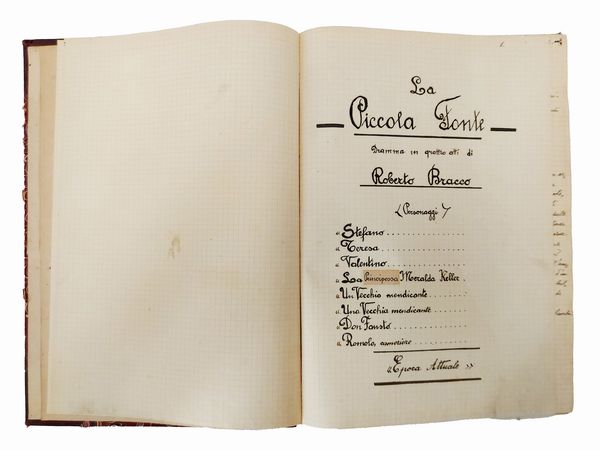 1.
La
Piccola Fonte
Dramma in quattro atti di
Roberto Bracco
(Personaggi)
« Stefano . . . . . . . . . . . . .
« Teresa . . . . . . . . . . . . .
« Valentino . . . . . . . . . . . . .
« La Principessa Meralda Keller .
« Un Vecchio mendicante . . . . . .
« Una Vecchia mendicante . . . . . .
« Don Fausto . . . . . . . . . . .
« Romolo, cameriere . . . . . . . . .
« Epoca Attuale »